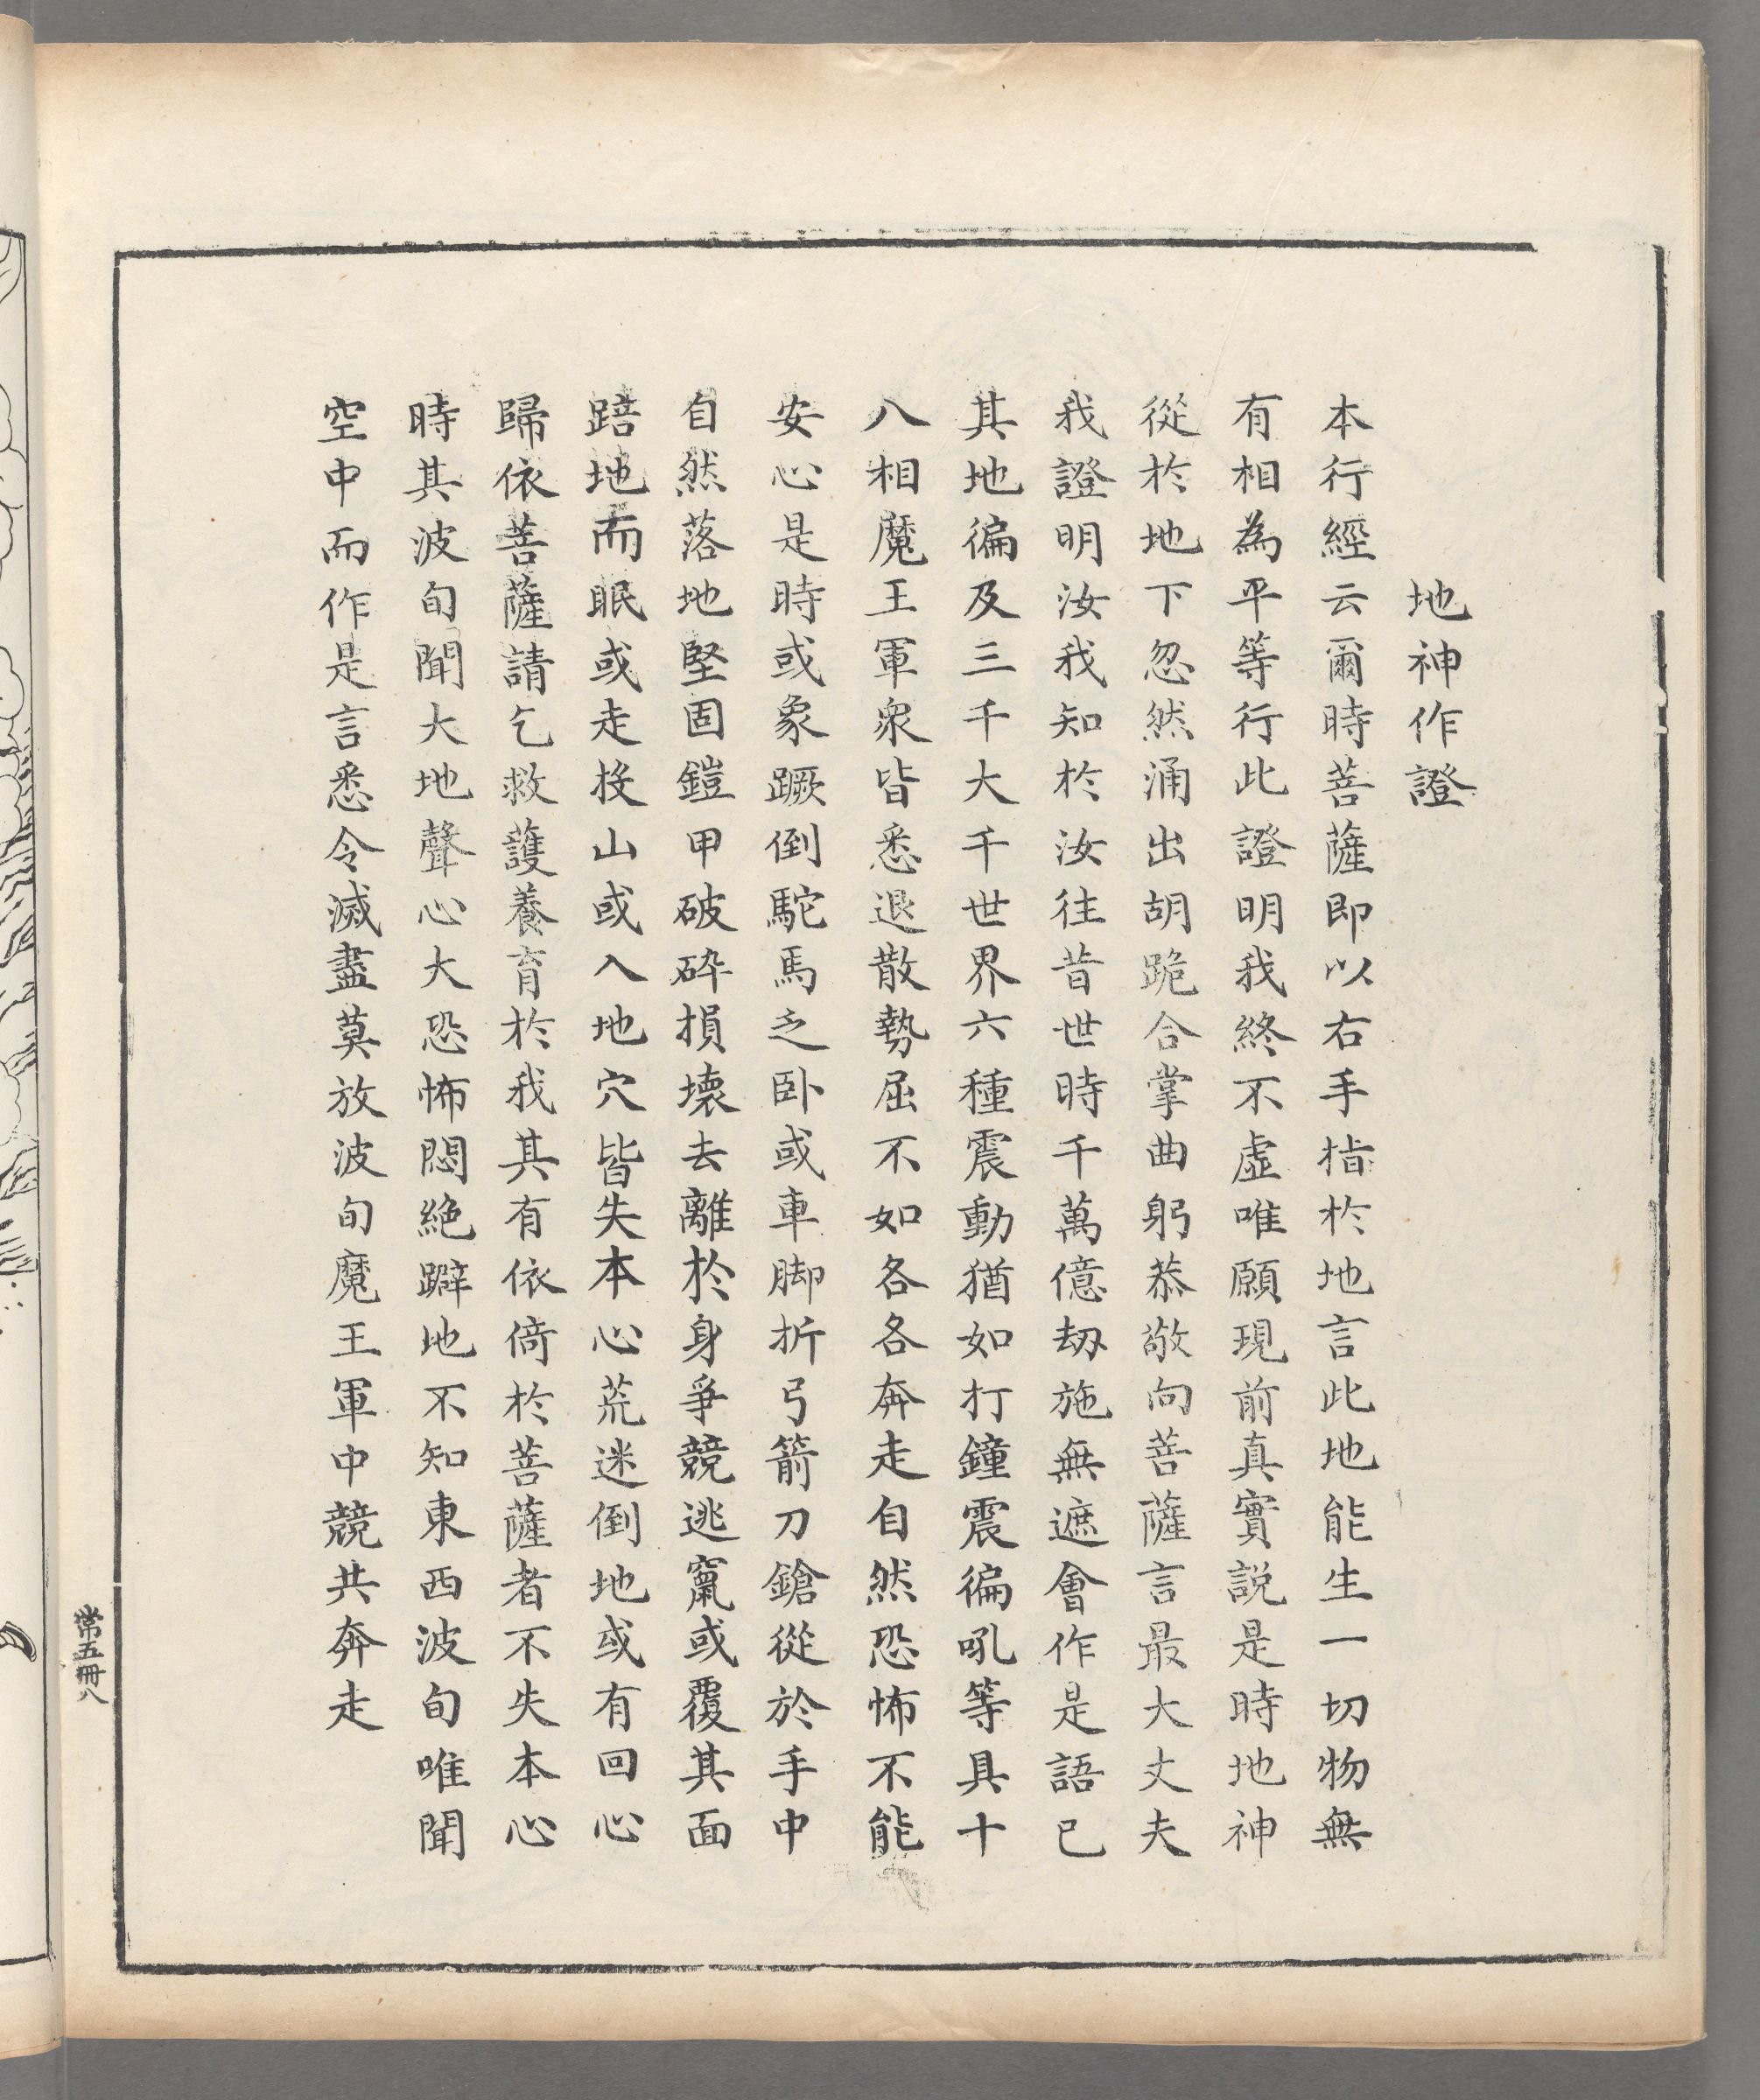 地神作證
本行經云爾時菩薩即以右手指於地言此地能生一切物無
有相為平等行此證明我終不虛唯願現前真實說是時地神
從於地下忽然涌出胡跪合掌曲躬恭敬向菩薩言最大丈夫
我證明汝我知於汝往昔世時千萬億劫施無遮會作是語已
其地徧及三千大千世界六種震動猶如打鐘震徧吼等具十
八相魔王軍衆皆悉退散勢屈不如各各奔走自然恐怖不能
安心是時或象蹶倒駝馬乏卧或車脚折弓箭刀鎗從於手中
自然落地堅固鎧甲破碎損壞去離於身爭競逃竄或覆其面
踣地而眠或走投山或入地穴皆失本心荒迷倒地或有回心
歸依菩薩請乞救護養育於我其有依倚於菩薩者不失本心
時其波旬聞大地聲心大恐怖悶絕躃地不知東西波旬唯聞
空中而作是言悉令滅盡莫放波旬魔王軍中競共奔走
常五冊八